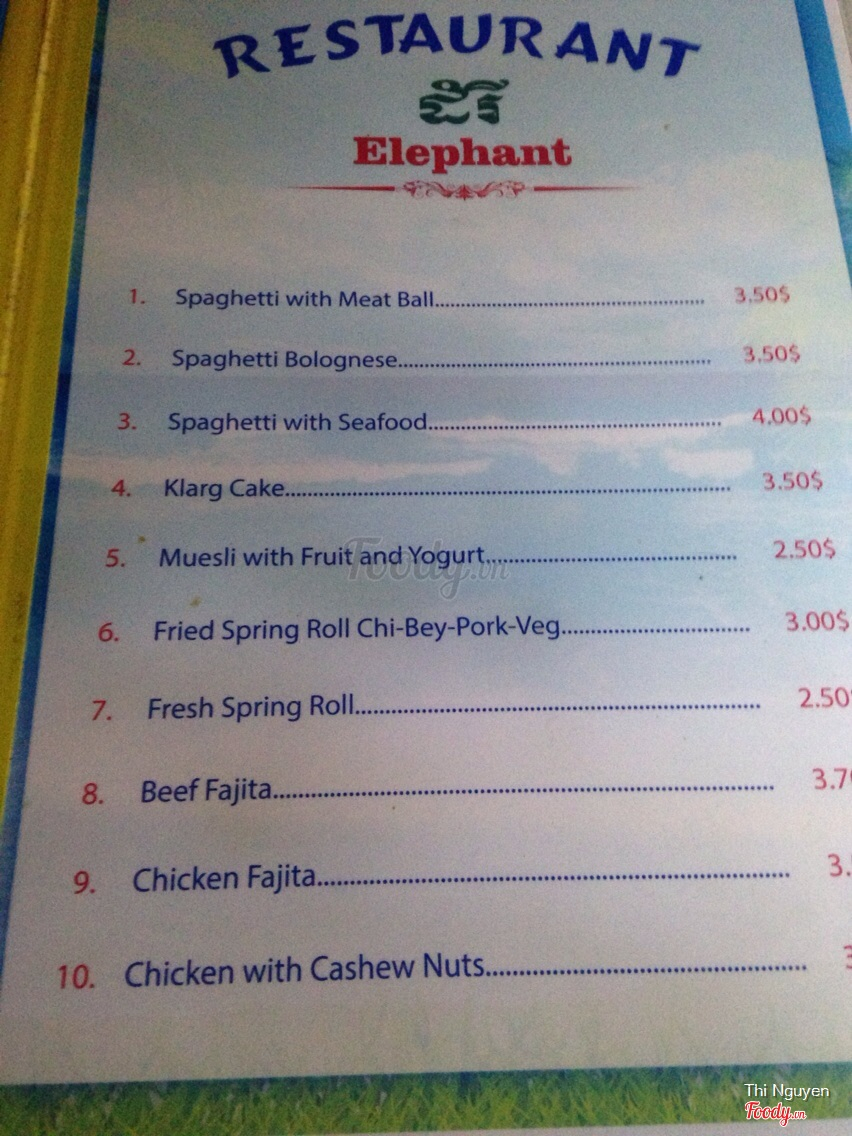 RESTAURANT
ដំរី
Elephant
1. Spaghetti with Meat Ball 3.50$
2. Spaghetti Bolognese 3.50$
3. Spaghetti with Seafood 4.00$
4. Klarg Cake 3.50$
5. Muesli with Fruit and Yogurt 2.50$
Foody.vn
6. Fried Spring Roll Chi-Bey-Pork-Veg 3.00$
7. Fresh Spring Roll 2.50
8. Beef Fajita 3.7
9. Chicken Fajita 3.
10. Chicken with Cashew Nuts 3
Thi Nguyen
Foody.vn